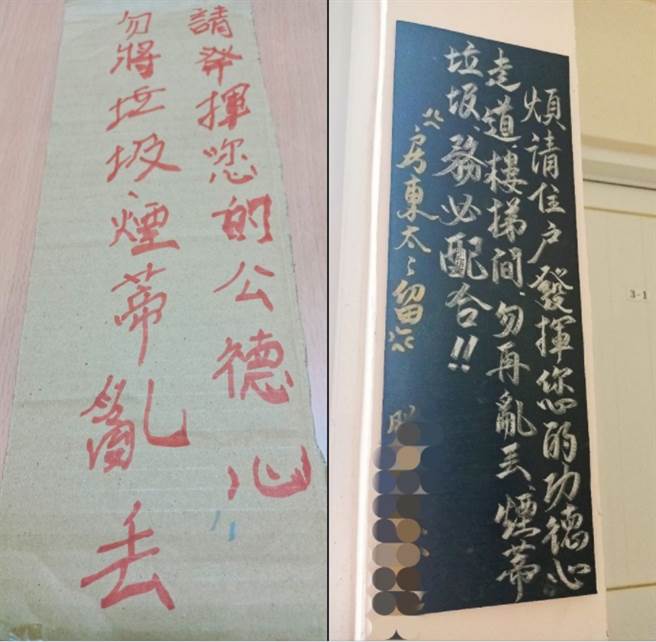 請發揮您的公德心
勿將垃圾、煙蒂亂丟
煩請住户發揮您的功德心
走道樓梯間、勿再亂丢、煙蒂
垃圾、務必配合!!
房東太々留
3-1